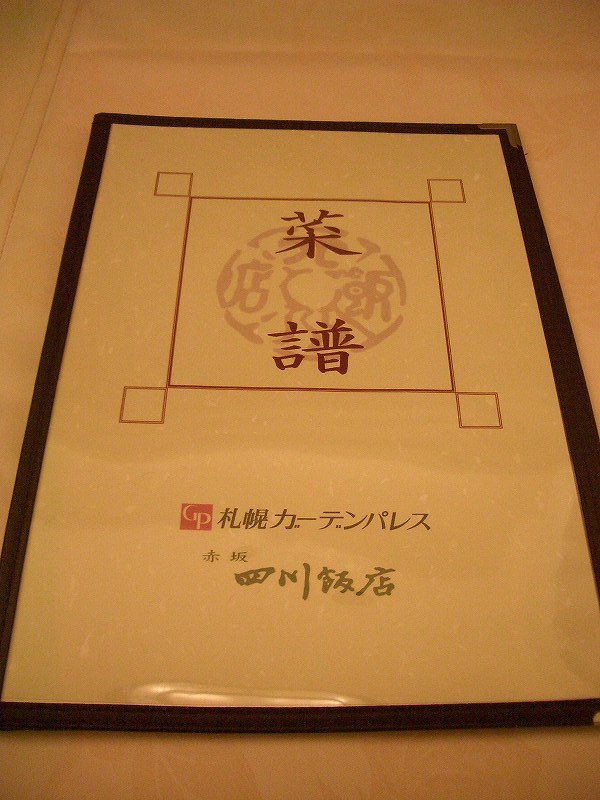 菜
譜
GP 札幌ガーデンパレス
赤坂
四川飯店